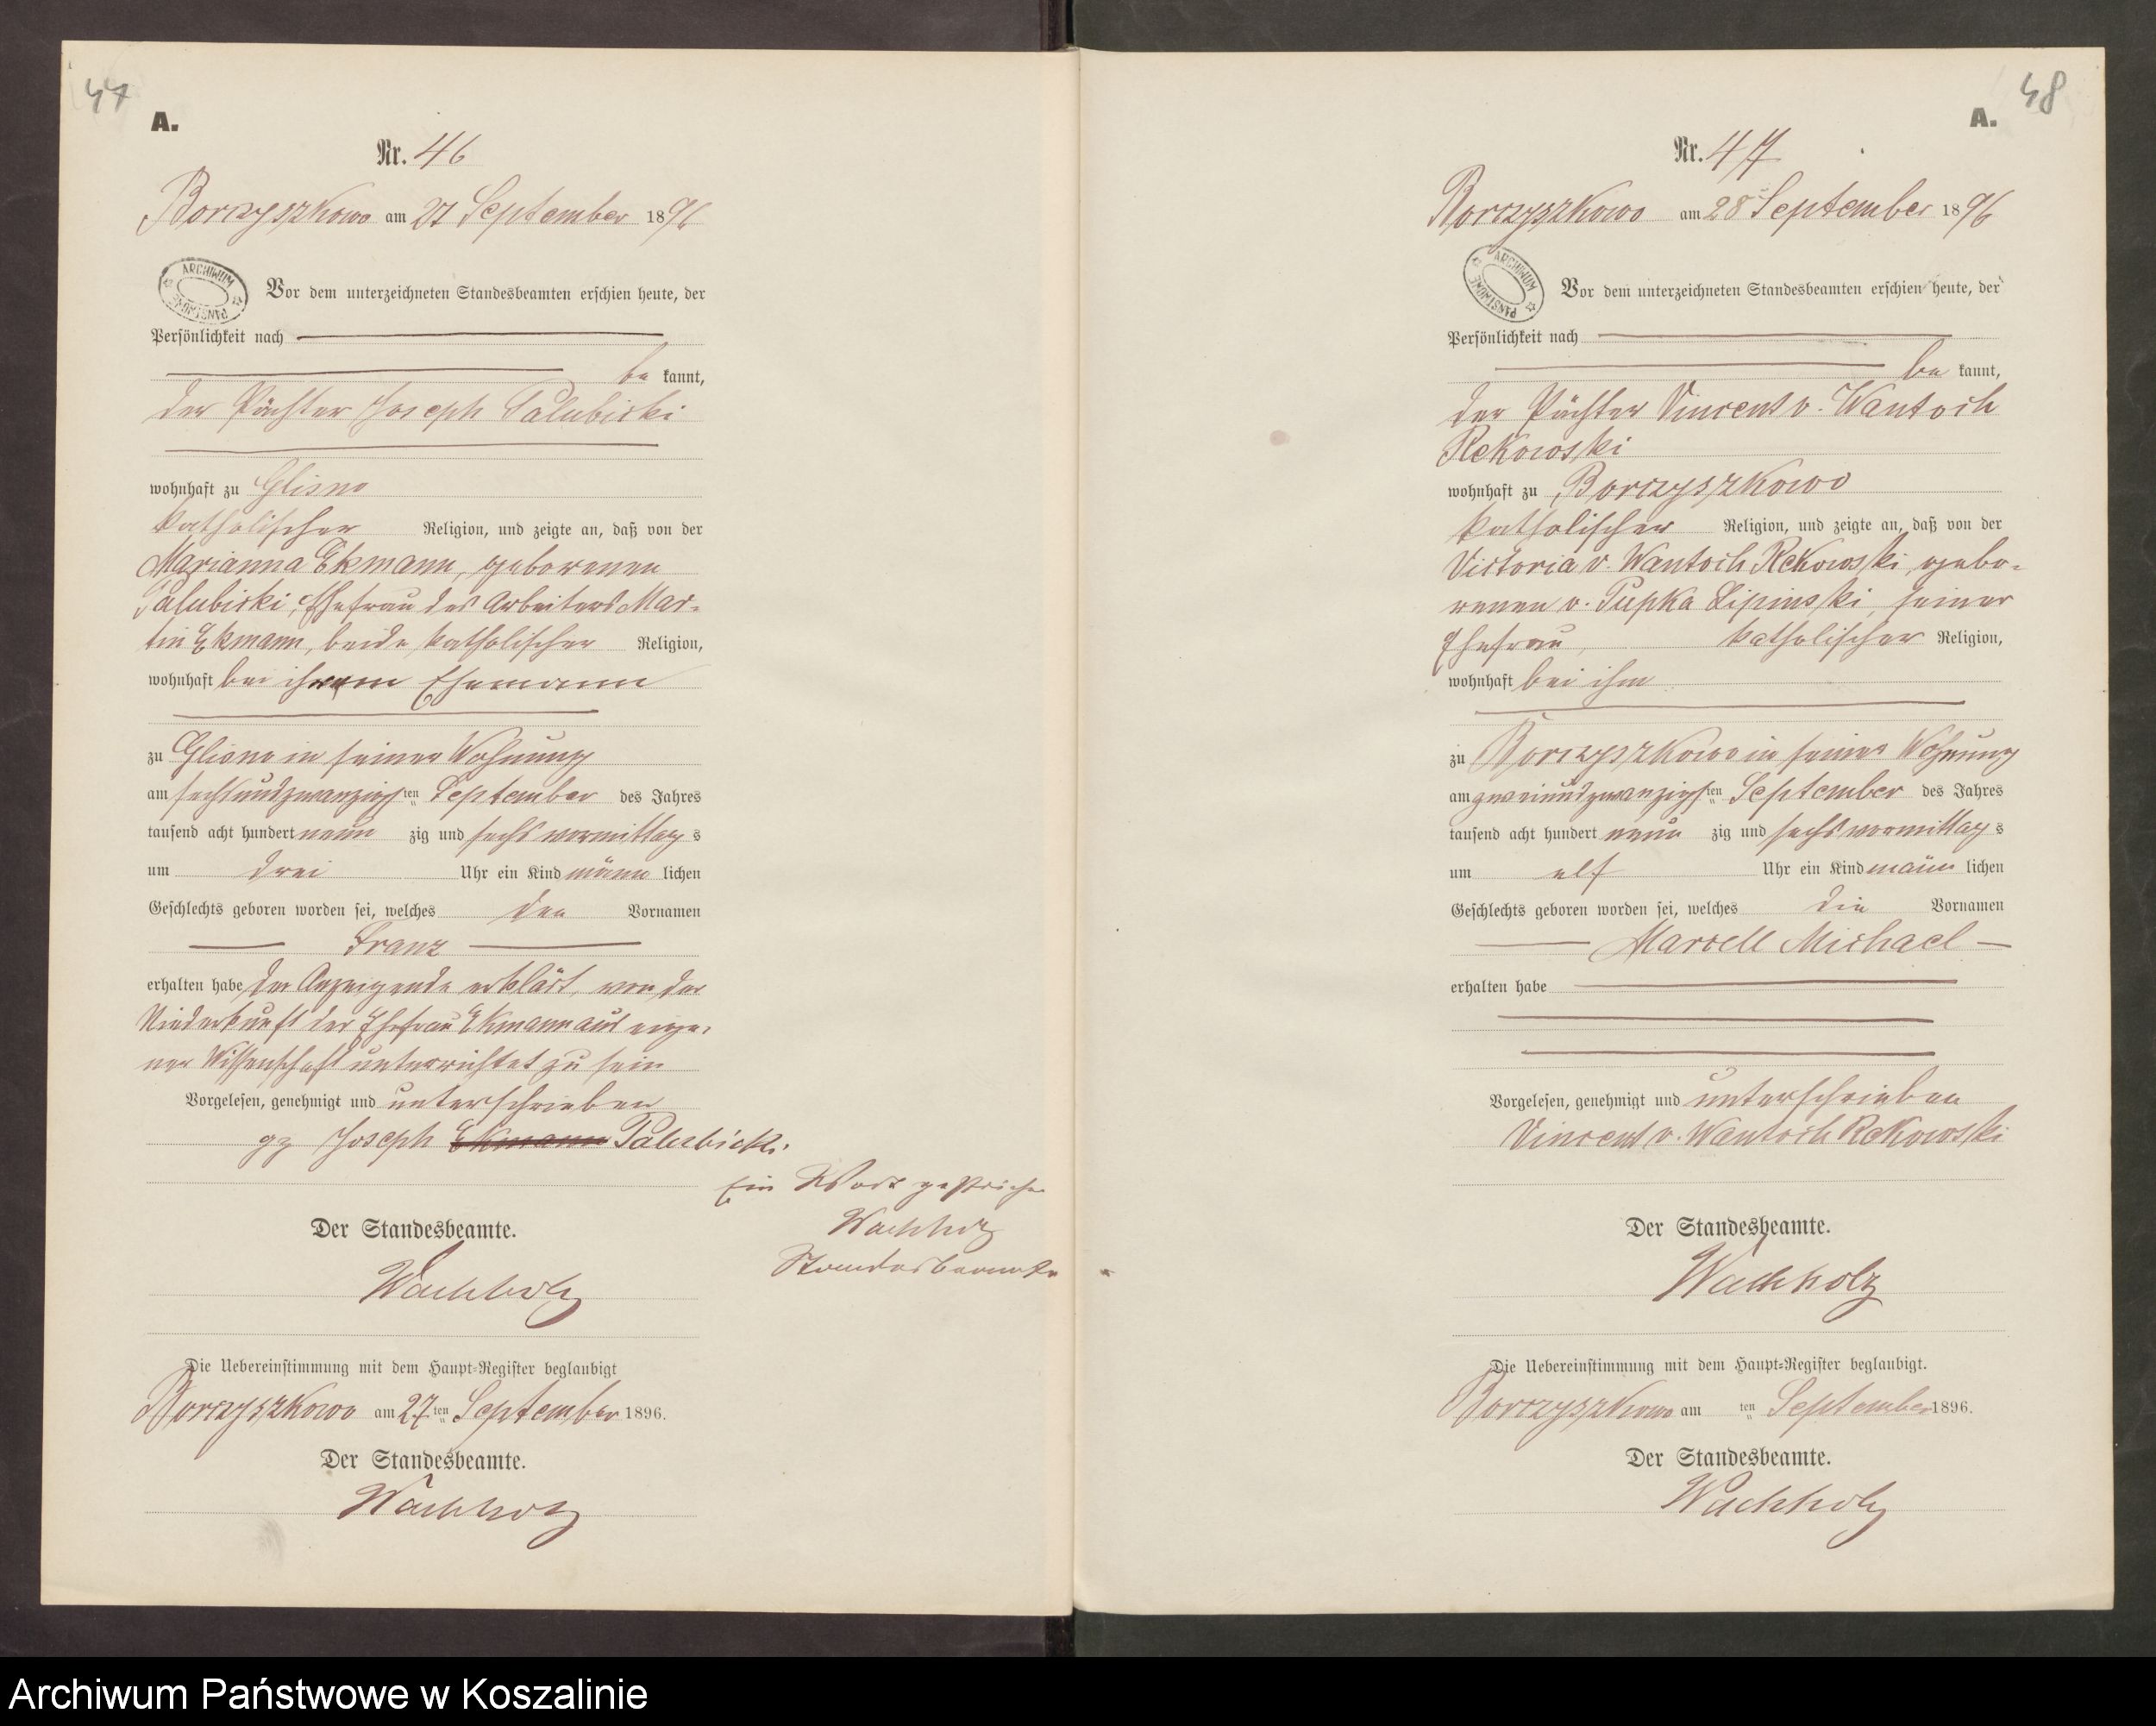 47
A.
Nr. 46
Borczyszkowo am 27 September 1896
ARCHIWUM PAŃSTWOWE
Vor dem unterzeichneten Standesbeamten erschien heute, der
Persönlichkeit nach
be kannt,
der Pächter Joseph Palubicki
wohnhaft zu Glisno
katholischer Religion, und zeigte an, daß von der
Marianna Ekmann, geborenen
Palubicki, Ehefrau des Arbeiters Mar-
tin Ekmann, beide katholischer Religion,
wohnhaft bei ihrem Ehemann
zu Glisno in seiner Wohnung
am sechsundzwanzigsten September des Jahres
tausend acht hundert neun zig und sechs vormittag s
um drei Uhr ein Kind männ lichen
Geschlechts geboren worden sei, welches den Vornamen
Franz
erhalten habe der Anzeigende erklärt, von der
Niederkunft der Ehefrau Ekmann aus eige-
ner Wissenschaft unterrichtet zu sein
Vorgelesen, genehmigt und unterschrieben
gz Joseph Ekmann Palubicki
Ein Wort gestrichen
Wachholz
Standesbeamte
Der Standesbeamte.
Wachholz
Die Uebereinstimmung mit dem Haupt-Register beglaubigt
Borczyszkowo am 27ten September 1896.
Der Standesbeamte.
Wachholz
48
A.
Nr. 47
Borczyszkowo am 28 September 1896
ARCHIWUM PAŃSTWOWE
Vor dem unterzeichneten Standesbeamten erschien heute, der
Persönlichkeit nach
be kannt,
der Pächter Vincent v. Wantoch
Rekowski
wohnhaft zu Borczyszkowo
katholischer Religion, und zeigte an, daß von der
Victoria v. Wantoch Rekowski, gebo-
renen v. Pupka Lipinski, seiner
Ehefrau, katholischer Religion,
wohnhaft bei ihm
zu Borczyszkowo in seiner Wohnung
am zweiundzwanzigsten September des Jahres
tausend acht hundert neun zig und sechs vormittag s
um elf Uhr ein Kind männ lichen
Geschlechts geboren worden sei, welches die Vornamen
Marcell Michael
erhalten habe
Vorgelesen, genehmigt und unterschrieben
Vincent v. Wantoch Rekowski
Der Standesbeamte.
Wachholz
Die Uebereinstimmung mit dem Haupt-Register beglaubigt.
Borczyszkowo am ten September 1896.
Der Standesbeamte.
Wachholz
Archiwum Państwowe w Koszalinie